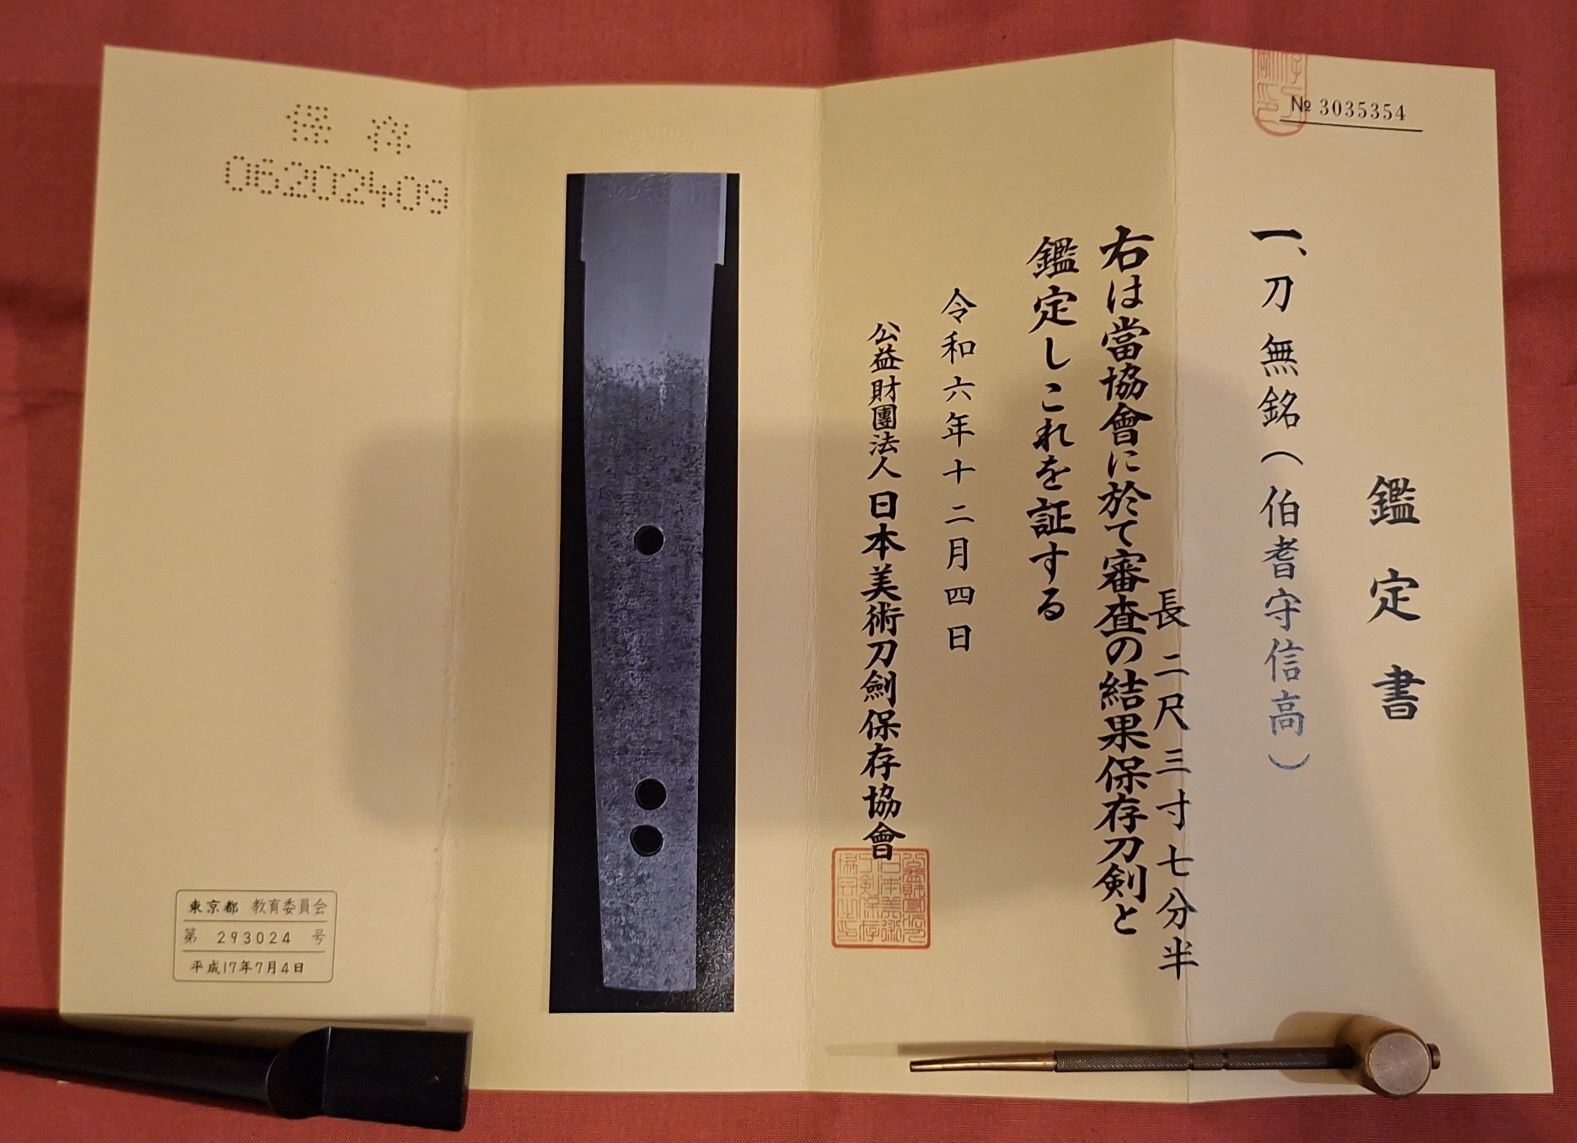 № 3035354
鑑定書
一、刀 無銘(伯耆守信高)
長 二尺三寸七分半
右は當協會に於て審査の結果保存刀剣と
鑑定しこれを証する
令和六年十二月四日
公益財團法人 日本美術刀劍保存協會
保存
06202409
東京都 教育委員会
第 293024 号
平成17年7月4日